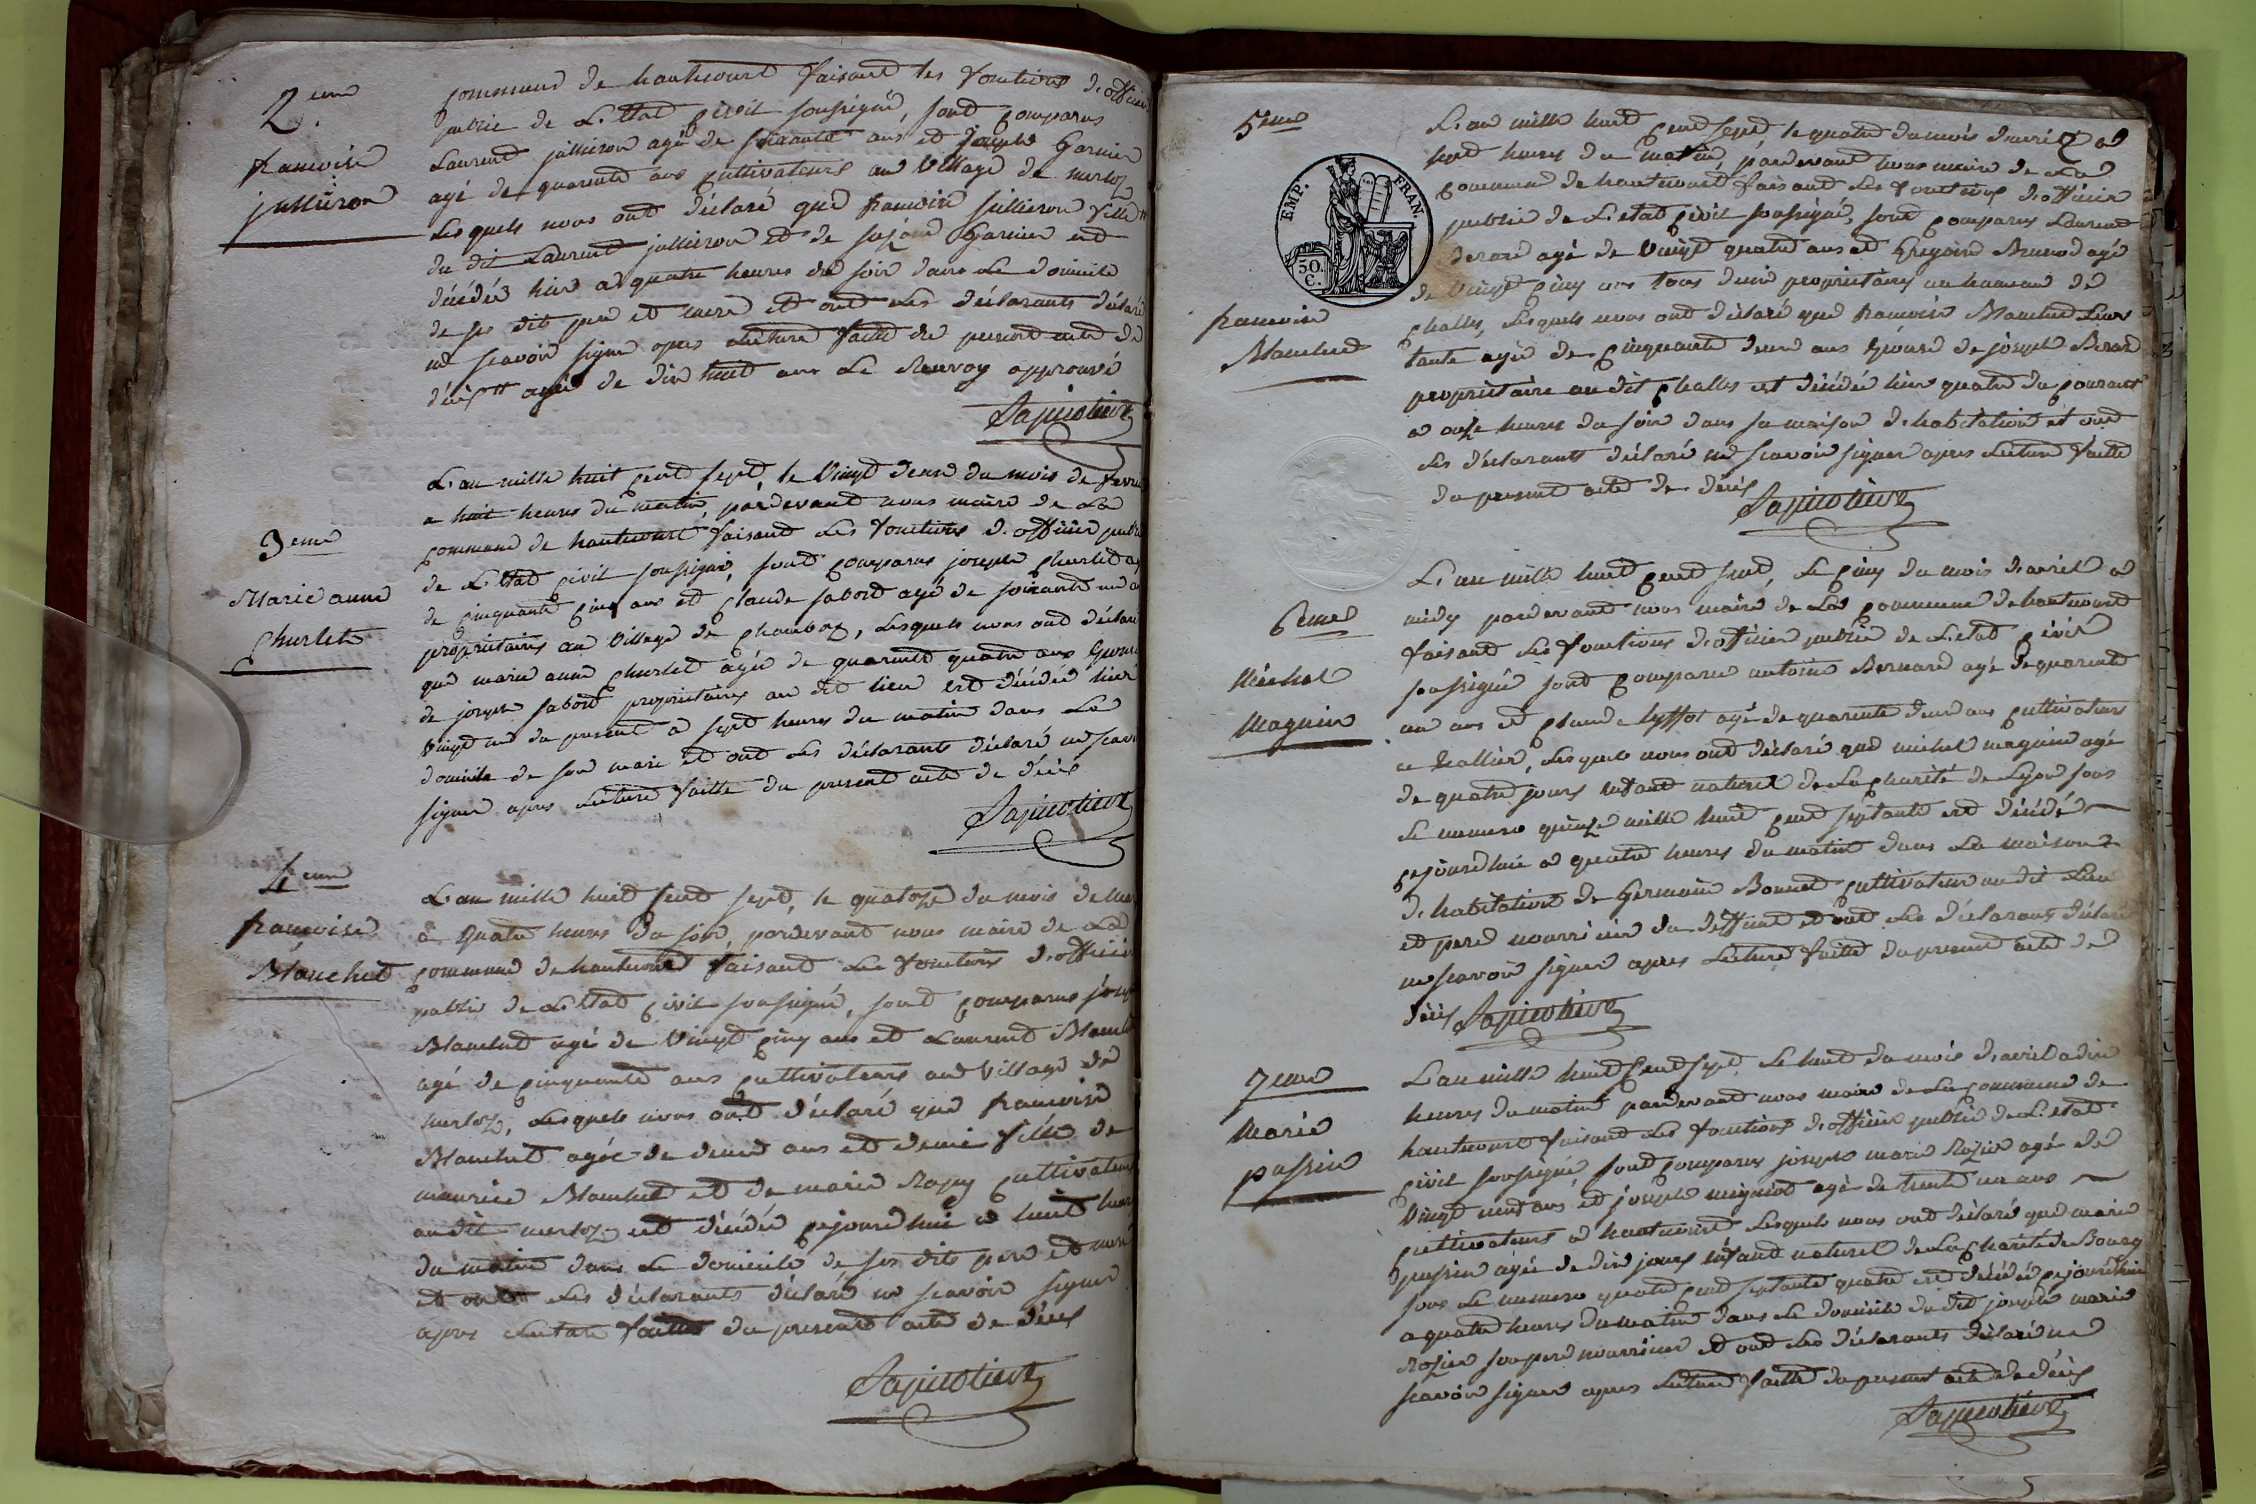 2.eme
francoise
jullieron
commune de hautecourt faisant les fonctions d'officier
public de L'Etat civil soussigné, sont comparus
Laurent jullieron agé de soixante ans et joseph Garnier
agé de quarente ans cultivateurs au village de merloz
Lesquels nous ont déclaré que francoise jullieron fille
du dit Laurent jullieron et de Garnier est
décédée hier a quatre heures du soir dans Le domicile
de ses dits pere et mere et ont Les déclarants déclaré
ne scavoir signer apres Lecture faitte du present acte de
décés agée de dix huit ans Le Renvoy approuvé
3eme
Marie anne
Churlet
L'an mille huit cent sept, le vingt deux du mois de fevrier
a huit heures du matin, pardevant nous maire de La
commune de hautecourt faisant Les fonctions d'officier public
de L'Etat civil soussigné, sont comparus joseph Churlet
de cinquante cinq ans et Claude sabord agé de soixante un
proprietaires au village de Chambos, Lesquels nous ont déclaré
que marie anne Churlet agée de quarente quatre ans Epouse
de joseph sabord proprietaires au dit lieu est décédée hier
vingt un du present a sept heures du matin dans Le
domicile de son mari et ont Les déclarants déclaré ne scavoir
signer apres Lecture faitte du present acte de décés
4eme
francoise
Blanchet
L'an mille huit cent sept, le quatorze du mois de
à quatre heures du soir, pardevant nous maire de La
commune de hautecourt faisant Les fonctions d'officier
public de L'Etat civil soussigné, sont comparus
Blanchet agé de vingt cinq ans et Laurent Blanchet
agé de cinquante ans cultivateurs au village de
merloz, Lesquels nous ont déclaré que francoise
Blanchet agée de deux ans et demie fille de
maurice Blanchet et de marie cultivateurs
au dit merloz est décédée cejourdhui a huit heures
du matin dans Le domicile de ses dits pere et mere
et ont Les déclarants déclaré ne scavoir signer
apres Lecture faitte du present acte de décés
5eme
EMP. FRAN.
50.
C.
francoise
Blanchet
L'an mille huit cent sept, le quatre du mois d'avril a
sept heures du matin, pardevant nous maire de La
commune de hautecourt faisant Les fonctions d'officier
public de L'etat civil soussigné, sont comparus Laurent
agé de vingt quatre ans et Gregoire Brunod agé
de vingt cinq ans tous deux proprietaires au hameau de
Challes, Lesquels nous ont déclaré que francoise Blanchet Leur
tante agée de cinquante deux ans Epouse de joseph Berard
proprietaire au dit Challes est décédée hier quatre du courant
a onze heures du soir dans sa maison d'habitation et ont
Les déclarants déclaré ne scavoir signer apres Lecture faitte
du present acte de décés
6eme
Michel
Magnin
L'an mille huit cent sept, Le cinq du mois d'avril a
midy pardevant nous maire de La commune de hautecourt
faisant Les fonctions d'officier public de L'etat civil
soussigné sont comparus antoine Bernard agé de quarente
un ans et Claude agé de quarente deux ans cultivateurs
a hallier, Lesquels nous ont déclaré que michel magnin agé
de quatre jours Enfant naturel de La charité de Lyon sous
Le numero quinze mille huit cent septante est décédé
cejourdhui a quatre heures du matin dans La maison
d'habitation de Germain Bonnet cultivateur au dit Lieu
et pere nourricier du deffunt et ont Les déclarants déclaré
ne scavoir signer apres Lecture faitte du present acte de
décés
7eme
Marie
passin
L'an mille huit cent sept, Le huit du mois d'avril a dix
heures du matin pardevant nous maire de La commune de
hautecourt faisant Les fonctions d'officier public de L'etat
civil soussigné, sont comparus joseph marie Rozier agé de
vingt neuf ans et joseph migniot agé de trente un ans
cultivateurs a hautecourt Lesquels nous ont déclaré que marie
passin agée de dix jours Enfant naturel de La Charité de Bourg
sous Le numero quatre cent septante quatre est décédée cejourdhui
a quatre heures du matin dans Le domicile du dit joseph marie
Rozier son pere nourricier et ont Les déclarants déclaré ne
scavoir signer apres Lecture faitte du present acte de décés